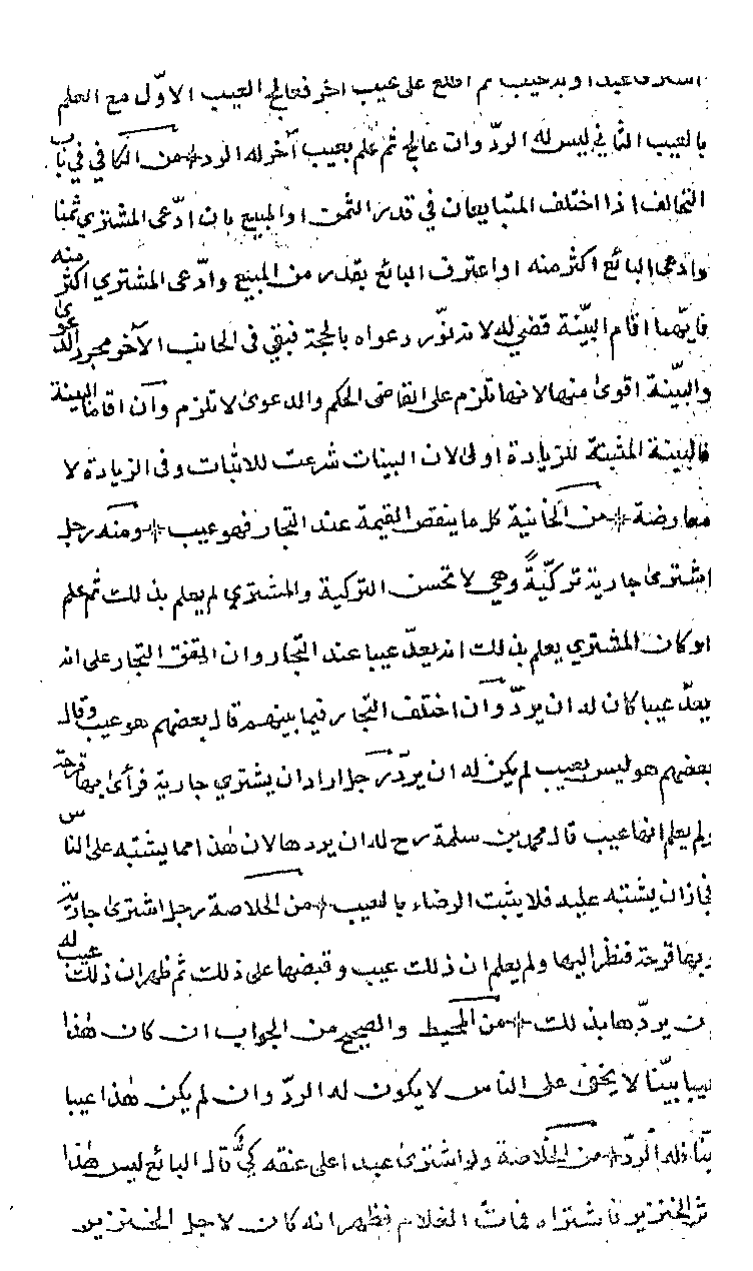 اشترى عبدا وبه عيب ثم اطلع على عيب اخر فعالج العيب الاوّل مع العلم
بالعيب الثاني ليس له الردّ وان عالج ثم علم بعيب آخر له الرد من الكافي في باب
التحالف اذا اختلف المتبايعان في قدر الثمن او المبيع بان ادّعى المشتري ثمنا
وادعى البائع اكثر منه او اعترف البائع بقدر من المبيع وادّعى المشتري اكثر منه
فايّهما اقام البيّنة قضي له لانه نوّر دعواه بالحجة فبقي في الجانب الآخر مجرد الدعوى
والبيّنة اقوى منها لانها تلزم على القاضى الحكم والدعوى لا تلزم وان اقاما البينة
فالبينة المثبتة للزيادة اولى لان البينات شرعت للاثبات وفى الزيادة لا
معارضة من الخانية كل ما ينقص القيمة عند التجار فهو عيب ومنه رجل
اشترى جارية تركيّةً وهي لا تحسن التركية والمشتري لم يعلم بذلك ثم علم
او كان المشتري يعلم بذلك انه يعدّ عيبا عند التجار وان اتفق التجار على انه
يعدّ عيبا كان له ان يردّ وان اختلف التجار فيما بينهم قال بعضهم هو عيب وقال
بعضهم هو ليس بعيب لم يكن له ان يردّ رجل اراد ان يشتري جارية فرأى بها قرحة
ولم يعلم انها عيب قال محمد بن سلمة رح له ان يردها لان هذا مما يشتبه على الناس
فجاز ان يشتبه عليه فلا يثبت الرضاء بالعيب من الخلاصة رجل اشترى جارية
وبها قرحة فنظر اليها ولم يعلم ان ذلك عيب وقبضها على ذلك ثم ظهر ان ذلك عيب له
ان يردّها بذلك من المحيط والصحيح من الجواب ان كان هذا
عيبا بيّنا لا يخفى على الناس لا يكون له الردّ وان لم يكن هذا عيبا
بيّنا فله الردّ من الخلاصة ولو اشترى عبدا على عنقه كيٌّ قال البائع ليس هذا
اثر الخنزير فاشتراه فمات الغلام فظهر انه كان لاجل الخنزير